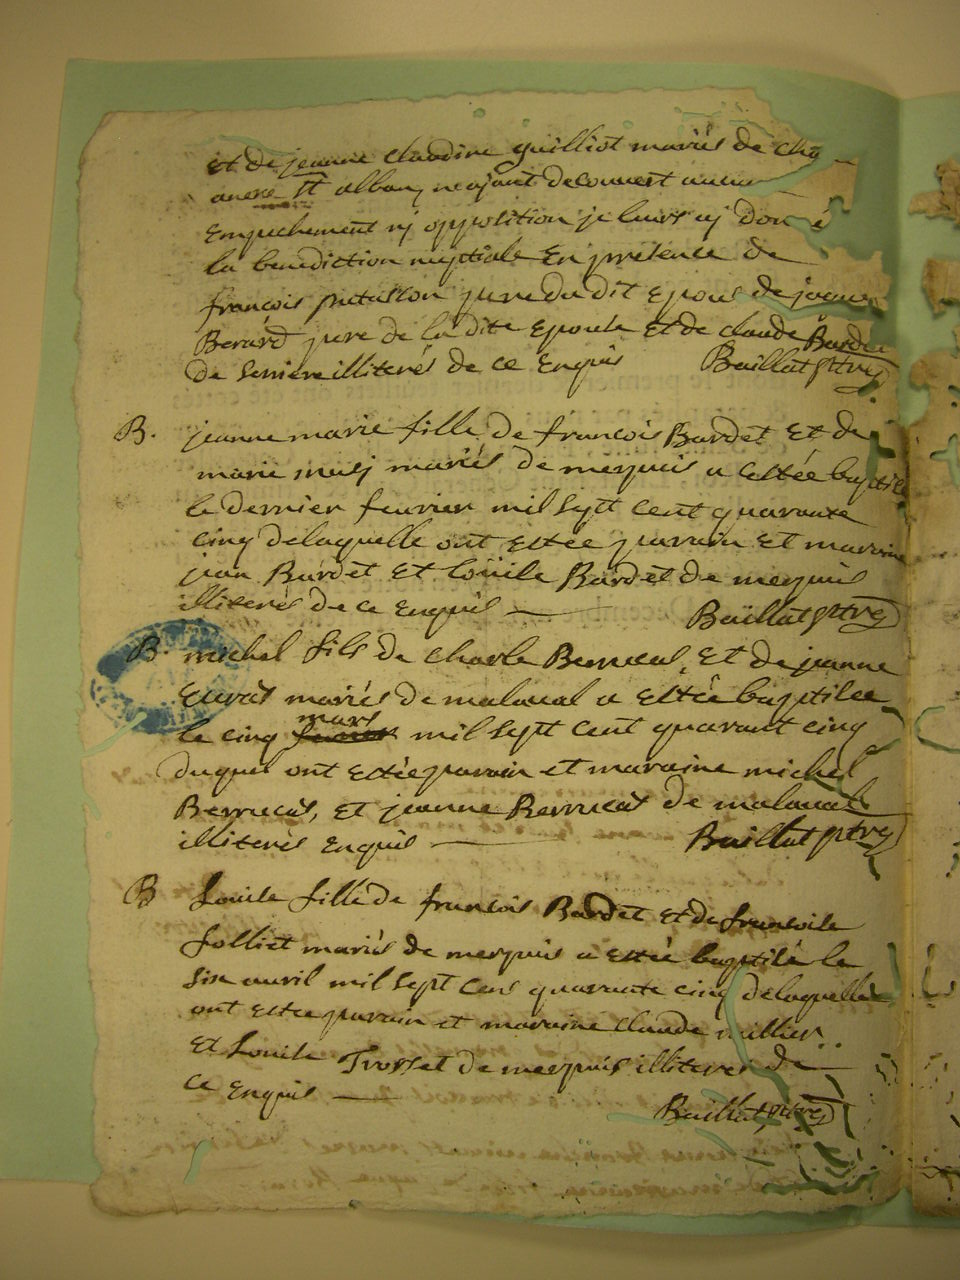 et de jeanne claudine guilliot mariés de cha
ancre St alban, neajant decouvert aucun
empechement nj opposition je leurs aj doné
la benediction nuptiale En présence de
françois pere du dit Epous de jaque
Berard pere de la dite Epouse et de claude Bardet
de illiterés de ce Enquis Baillat ptre
B. jeanne marie fille de francois Bardet Et de
marie musj mariés de merpuis a estée baptisé
le dernier feuvrier mil sept cent quarante
cinq delaquelle ont estée parrain et marraine
jean Bardet Et Loüise Bardet de merpuis
illiterés de ce Enquis Baillat ptre
B. michel fils de Charle Berrucas, Et de jeanne
mariés de malaval a estée baptisee
le cinq mars mil sept cent quarant cinq
duquel ont estée parain et maraine michel
Berrucas, et jeanne Berrucas de malaval
illiterés Enquis Baillat ptre
B Louise fille de francois Bardet et de francoise
folliet mariés de merpuis a estée baptisé le
six avril mil sept cens quarante cinq delaquelle
ont estee parain et maraine claude millier
et Louise Trosset de merpuis illiteres de
ce Enquis Baillat ptre